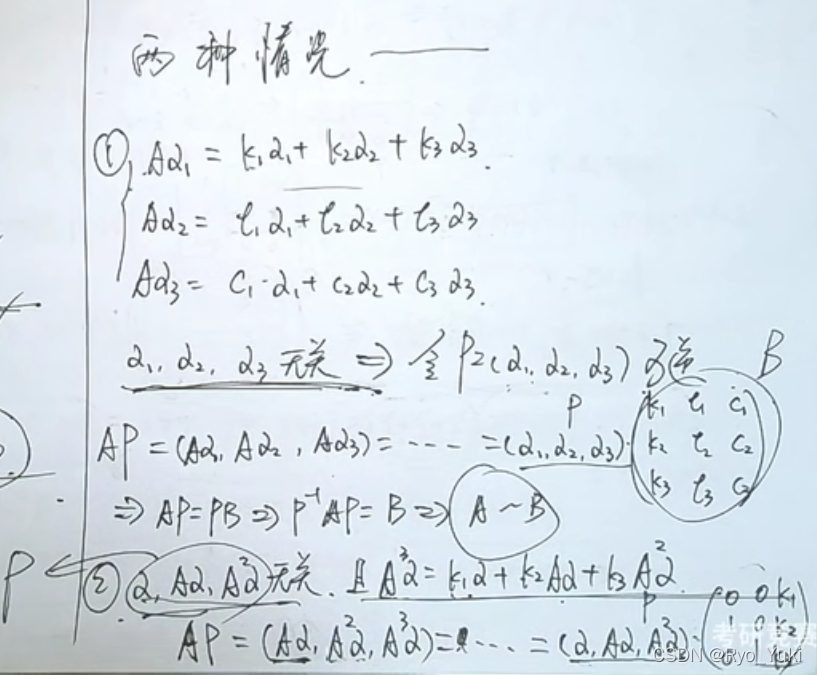 两种情况 ——
① Aα₁ = k₁α₁ + k₂α₂ + k₃α₃.
Aα₂ = l₁α₁ + l₂α₂ + l₃α₃
Aα₃ = C₁·α₁ + C₂α₂ + C₃α₃.
α₁, α₂, α₃ 无关 ⇒ 令 P=(α₁, α₂, α₃) 可逆 B
P k₁ l₁ c₁
AP = (Aα₁, Aα₂, Aα₃) = ---- = (α₁, α₂, α₃)· k₂ l₂ c₂
k₃ l₃ c₂
⇒ AP=PB ⇒ P⁻¹AP = B ⇒ A ~ B
P ← ② α, Aα, A²α 无关. 且 A³α = k₁α + k₂Aα + k₃A²α
P 0 0 k₁
AP = (Aα, A²α, A³α) = ---- = (α, Aα, A²α)· 1 0 k₂
考研竞赛
CSDN @Ryo_Yuki